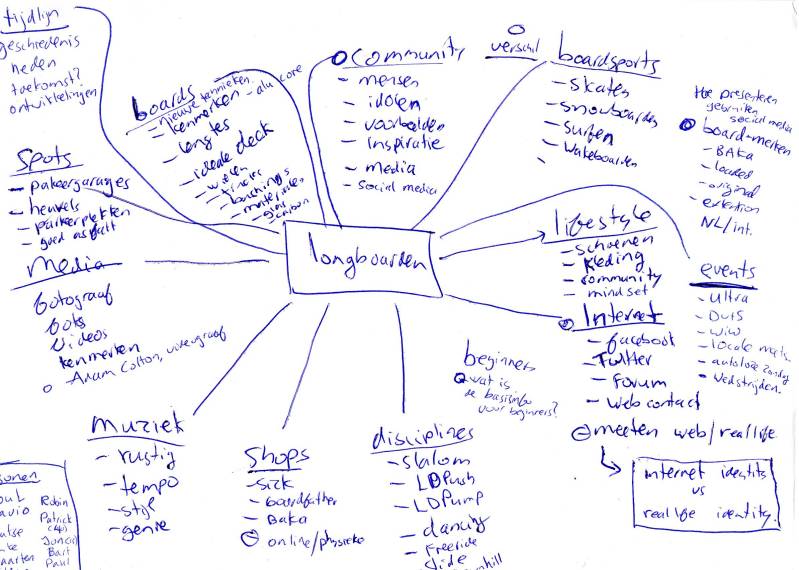 tijdlijn
geschiedenis
heden
toekomst?
ontwikkelingen
boards
- nieuwe technieken
- kenmerken - alu core
- lengtes
- ideale deck
- wielen
- trucks
- bushings
- materialen
- glas
- carbon
community
- mensen
- idolen
- voorbeelden
- inspiratie
- media
- social media
verschil
boardsports
- skaten
- snowboarden
- surfen
- wakeboarden
-
Hoe presenteren
gebruiken
social media
board-merken
- BAKA
- loaded
- original
- extention
NL/int.
Spots
- parkeergarages
- heuvels
- parkeerplekken
- goed asfalt
longboarden
lifestyle
- schoenen
- kleding
- community
- mindset
events
- Ultra
- Duts
- WiW
- locale meets
- autoloze zondag
- wedstrijden.
Media
fotograaf
foto's
videos
kenmerken
Adam Colton, videograaf
Internet
- facebook
- Twitter
- Forum
- web contact
meeten web/reallife
internet identity
vs
reallife identity.
beginners
wat is
de basisinfo
voor beginners?
Muziek
- rustig
- tempo
- stijl
- genre
Shops
- sick
- boardfather
- Baka
online/physieke
disciplines
- slalom
- LDPush
- LDPump
- dancing
- Freeride
Robin
Patrick
Bart
Paul